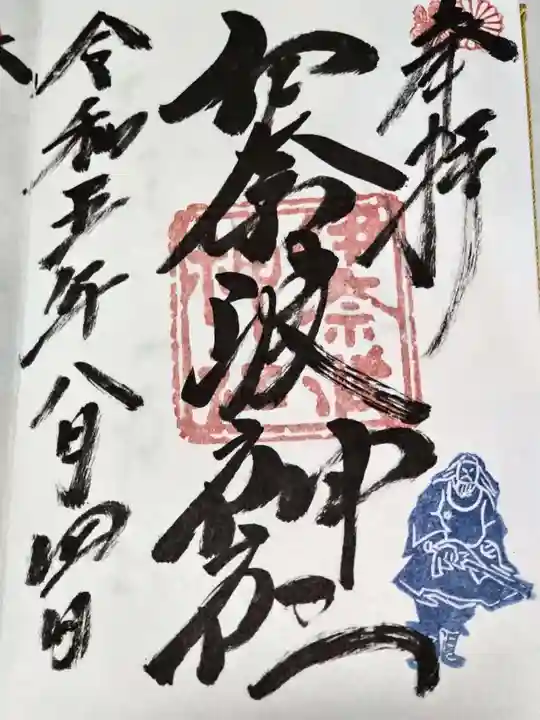 奉拝
伊奈波神社
令和五年八月四日